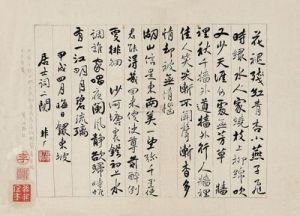 花褪殘紅青杏小燕子飛
時綠水人家繞枝上柳綿吹
又少天涯何處無芳草牆
裡秋千牆外道牆外行人牆裡
佳人笑笑漸不聞聲漸杳多
情却被無情惱
湖山信是東南美一望彌千里使
君能得幾回來便使尊前醉倒
更徘徊沙河塘裡燈初上水
調誰家唱夜闌風靜欲歸時惟
有一江明月碧琉璃
甲戌四月晦日錄東坡
居士詞二闋